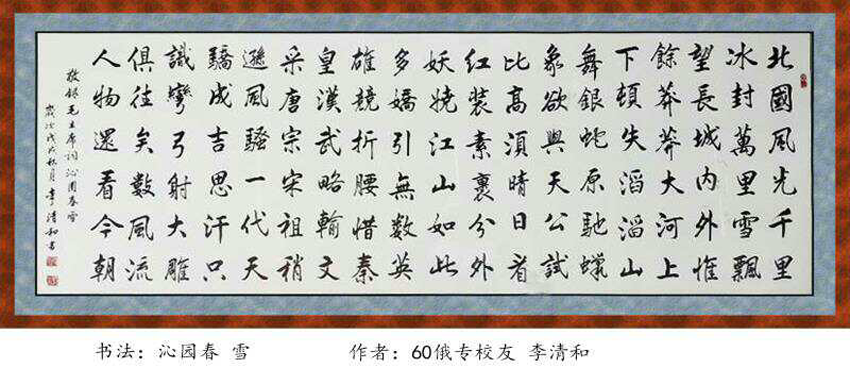 北國風光千里
冰封萬里雪飄
望長城內外惟
餘莽莽大河上
下頓失滔滔山
舞銀蛇原馳蠟
象欲與天公試
比高須晴日看
紅裝素裹分外
妖嬈江山如此
多嬌引無數英
雄競折腰惜秦
皇漢武略輸文
采唐宗宋祖稍
遜風騷一代天
驕成吉思汗只
識彎弓射大雕
俱往矣數風流
人物還看今朝
敬錄毛主席詞沁園春雪
歲次戊戌秋月李清和書
书法：沁园春 雪 作者：60俄专校友 李清和